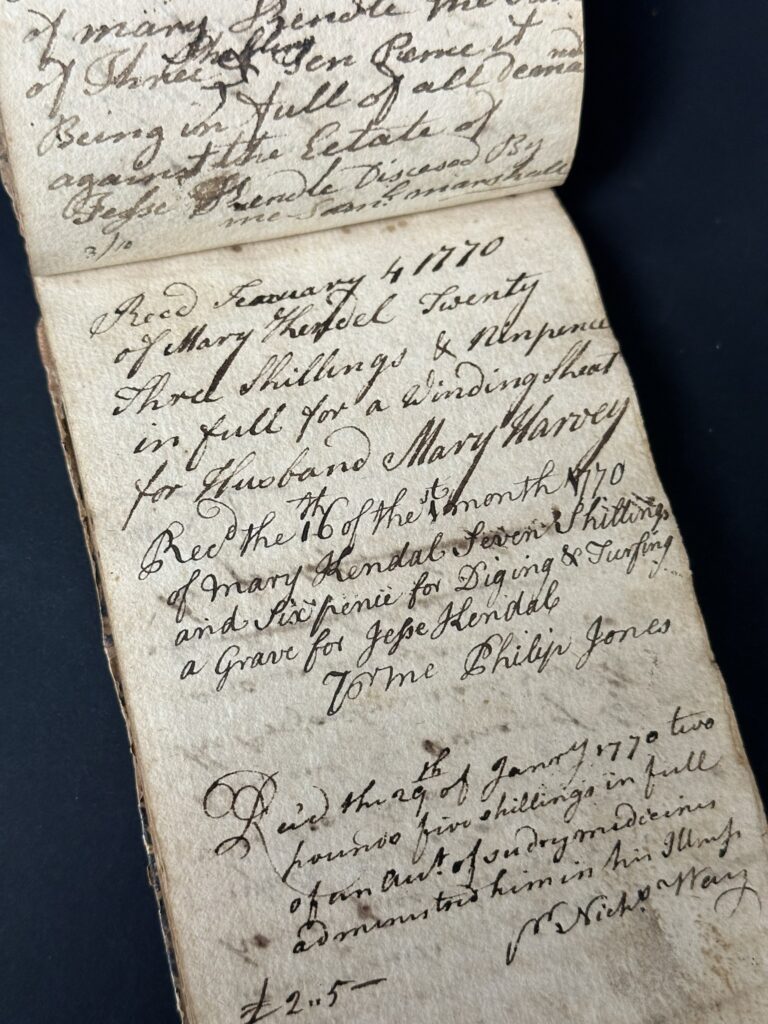 of mary Kendle the
of Three Shillings & Ten Pence it
Being in full of all demand
against the Estate of
Jesse Kendle Discesed By
3/10 me Saml. marshall
Recd Feauary 4 1770
of Mary Kendel Twenty
three Shillings & Ninpence
in full for a Winding Sheat
for Husband Mary Harvey
Recd the 16th of the 1st month 1770
of mary Kendal Seven Shillings
and Six pence for Diging & Turfing
a Grave for Jesse Kendal
Pr me Philip Jones
Rec'd the 29th of Janry 1770 two
pounds five shillings in full
of an Acct. of sudry medicins
administred him in his Illness
pr Nichs. Way
£2..5—